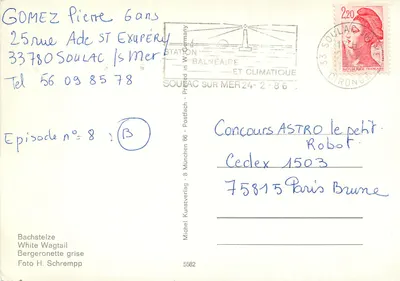 GOMEZ Pierre 6 ans
25 rue Ade St EXUPÉRY
33780 SOULAC s/s Mer
Tel 56 09 85 78
Episode n°= 8 : B
Bachstelze
White Wagtail
Bergeronette grise
Foto H. Schrempp
Michel Kunstverlag · 8 München 86 · Postfach · Printed in W.Germany
5582
STATION
BALNEAIRE
ET CLIMATIQUE
SOULAC SUR MER 24-2-86
2,20
33 SOULAC
Concours ASTRO le petit
Robot
Cedex 1503
75815 Paris Brune